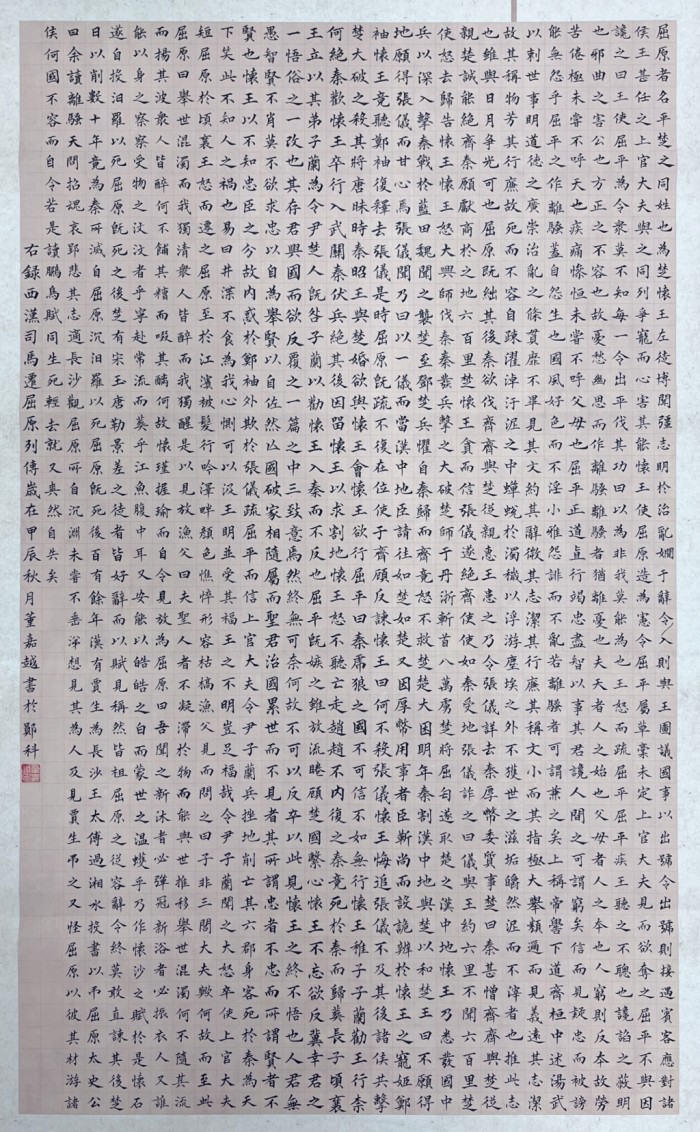 屈原者名平楚之同姓也為楚懷王左徒博聞彊志明於治亂嫺于辭令入則與王圖議國事以出號令出號則接遇賓客應對諸
侯王甚任之上官大夫與之同列爭寵而心害其能懷王使屈原造為憲令屈平屬草藁未定上官大夫見而欲奪之屈平不與因
讒之曰王使屈平為令衆莫不知每一令出平伐其功曰以為非我莫能為也王怒而疏屈平屈平疾王聽之不聰也讒諂之蔽明
也邪曲之害公也方正之不容也故憂愁幽思而作離騷離騷者猶離憂也夫天者人之始也父母者人之本也人窮則反本故勞
苦倦極未嘗不呼天也疾痛慘怛未嘗不呼父母也屈平正道直行竭忠盡智以事其君讒人間之可謂窮矣信而見疑忠而被謗
能無怨乎屈平之作離騷蓋自怨生也國風好色而不淫小雅怨誹而不亂若離騷者可謂兼之矣上稱帝嚳下道齊桓中述湯武
以刺世事明道德之廣崇治亂之條貫靡不畢見其文約其辭微其志潔其行廉其稱文小而其指極大舉類邇而見義遠其志潔
故其稱物芳其行廉故死而不容自疎濯淖汙泥之中蟬蛻於濁穢以浮游塵埃之外不獲世之滋垢皭然泥而不滓者也推此志
也雖與日月爭光可也屈原既絀其後秦欲伐齊齊與楚從親惠王患之乃令張儀詳去秦厚幣委質事楚曰秦甚憎齊齊與楚從
親楚誠能絕齊秦願獻商於之地六百里楚懷王貪而信張儀遂絕齊使使如秦受地張儀詐之曰儀與王約六里不聞六百里楚
使怒去歸告懷王懷王怒大興師伐秦秦發兵擊之大破楚師于丹淅斬首八萬虜楚將屈匄遂取楚之漢中地懷王乃悉發國中
兵以深入擊秦戰於藍田魏聞之襲楚至鄧楚兵懼自秦歸而齊竟怒不救楚楚大困明年秦割漢中地與楚以和楚王曰不願得
地願得張儀而甘心焉張儀聞乃曰以一儀而當漢中地臣請往如楚如楚又因厚幣用事者臣靳尚而設詭辯於懷王之寵姬鄭
袖懷王竟聽鄭袖復釋去張儀是時屈原既疏不復在位使於齊顧反諫懷王曰何不殺張儀懷王悔追張儀不及其後諸侯共擊
楚大破之殺其將唐眛時秦昭王與楚婚欲與懷王會懷王欲行屈平曰秦虎狼之國不可信不如無行懷王稚子子蘭勸王行奈
何絕秦歡懷王卒行入武關秦伏兵絕其後因留懷王以求割地懷王怒不聽亡走趙趙不內復之秦竟死於秦而歸葬長子頃襄
王立以其弟子蘭為令尹楚人既咎子蘭以勸懷王入秦而不反也屈平既嫉之雖放流睠顧楚國繫心懷王不忘欲反冀幸君之
一悟俗之一改也其存君興國而欲反覆之一篇之中三致意焉然終無可奈何故不可以反卒以此見懷王之終不悟也人君無
愚智賢不肖莫不欲求忠以自為舉賢以自佐然亡國破家相隨屬而聖君治國累世而不見者其所謂忠者不忠而所謂賢者不
賢也懷王以不知忠臣之分故內惑於鄭袖外欺於張儀疏屈平而信上官大夫令尹子蘭兵挫地削亡其六郡身客死於秦為天
下笑此不知人之禍也易曰井渫不食為我心惻可以汲王明並受其福王之不明豈足福哉令尹子蘭聞之大怒卒使上官大夫
短屈原於頃襄王怒而遷之屈原至於江濱被髮行吟澤畔顏色憔悴形容枯槁漁父見而問之曰子非三閭大夫歟何故而至此
屈原曰舉世混濁而我獨清衆人皆醉而我獨醒是以見放漁父曰夫聖人者不凝滯於物而能與世推移舉世混濁何不隨其流
而揚其波衆人皆醉何不餔其糟而啜其醨何故懷瑾握瑜而自令見放為屈原曰吾聞之新沐者必彈冠新浴者必振衣人又誰
能以身之察察受物之汶汶者乎寧赴常流而葬乎江魚腹中耳又安能以皓皓之白而蒙世之溫蠖乎乃作懷沙之賦於是懷石
遂自投汨羅以死屈原既死之後楚有宋玉唐勒景差之徒者皆好辭而以賦見稱然皆祖屈原之從容辭令終莫敢直諫其後楚
日以削數十年竟為秦所滅自屈原沉汨羅以死屈原既死後百有餘年漢有賈生為長沙王太傅過湘水投書以弔屈原太史公
曰余讀離騷天問招魂哀郢悲其志適長沙觀屈原所自沉淵未嘗不垂涕想見其為人及見賈生弔之又怪屈原以彼其材游諸
侯何國不容而自令若是讀鵬鳥賦同生死輕去就又爽然自失矣
右錄西漢司馬遷屈原列傳歲在甲辰秋月董嘉越書於鄭科